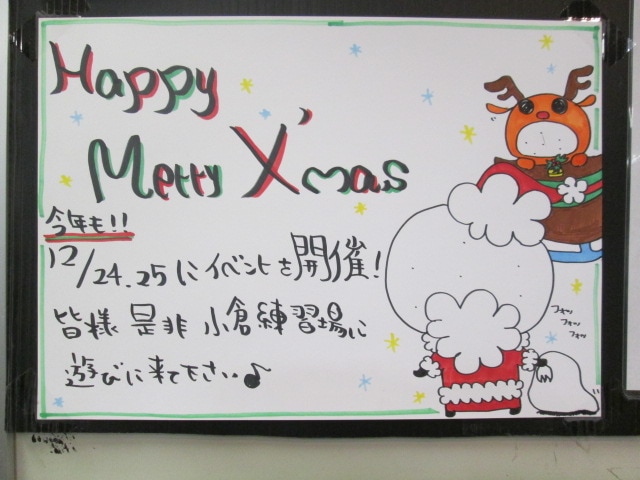 Happy
Merry X'mas
今年も!!
12/24.25にイベントを開催!
皆様是非小倉練習場に
遊びに来て下さい♪
フォッ
フォッ
フォッ